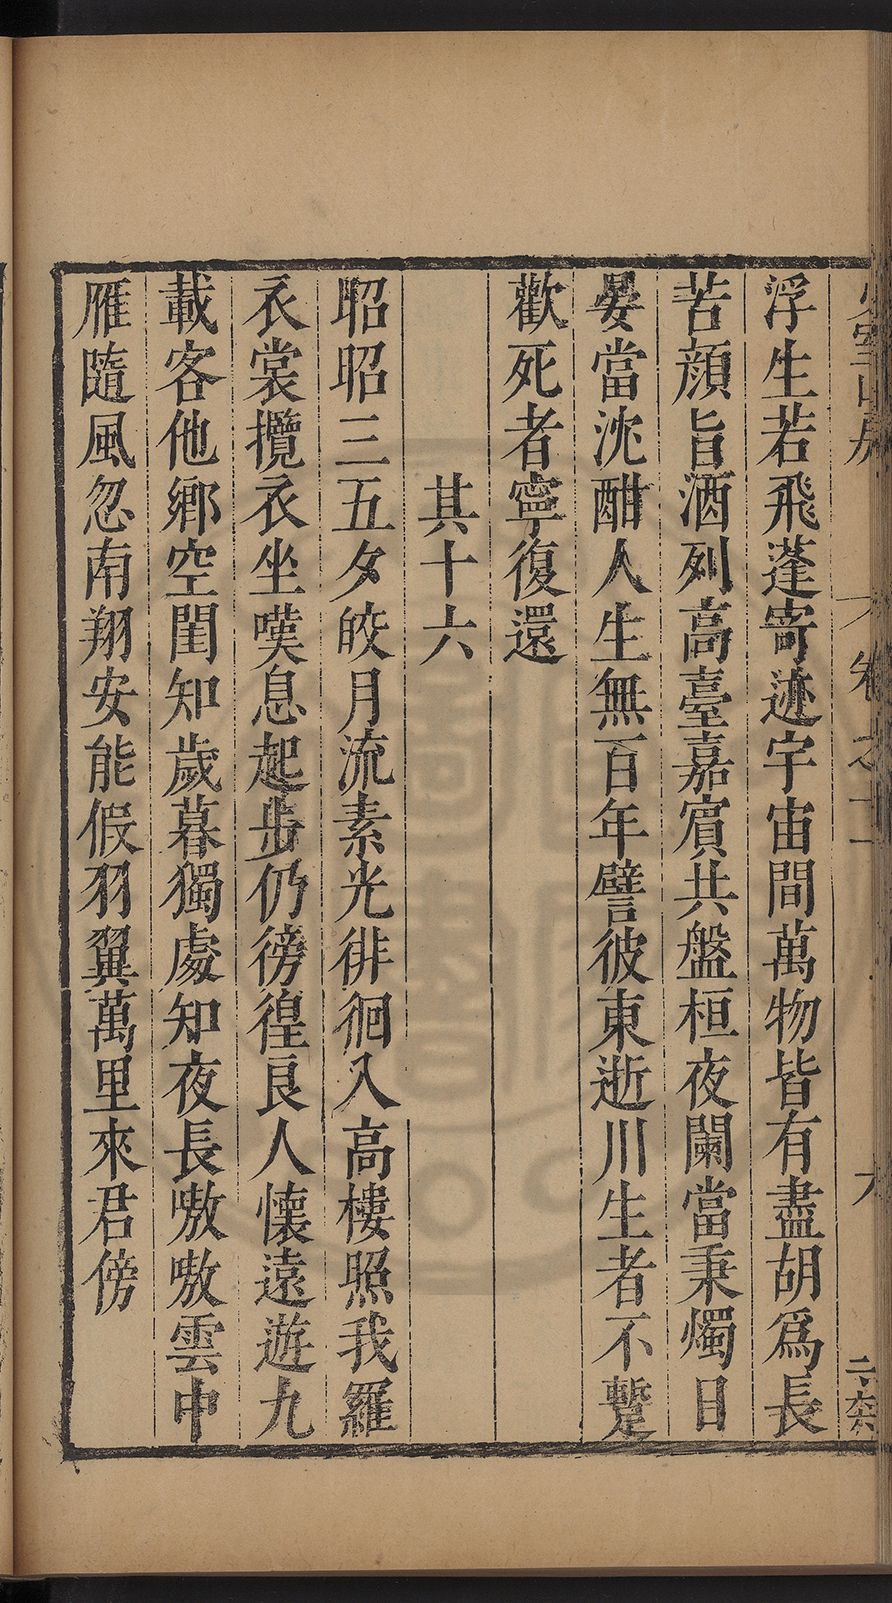 浮生若飛蓬寄迹宇宙間萬物皆有盡胡爲長
苦顔旨酒列高臺嘉賓共盤桓夜闌當秉燭日
晏當沈酣人生無百年譬彼東逝川生者不蹔
歡死者寧復還
其十六
昭昭三五夕皎月流素光徘徊入高樓照我羅
衣裳攬衣坐嘆息起步仍徬徨良人懷遠遊九
載客他鄉空閨知歲暮獨處知夜長嗷嗷雲中
雁隨風忽南翔安能假羽翼萬里來君傍